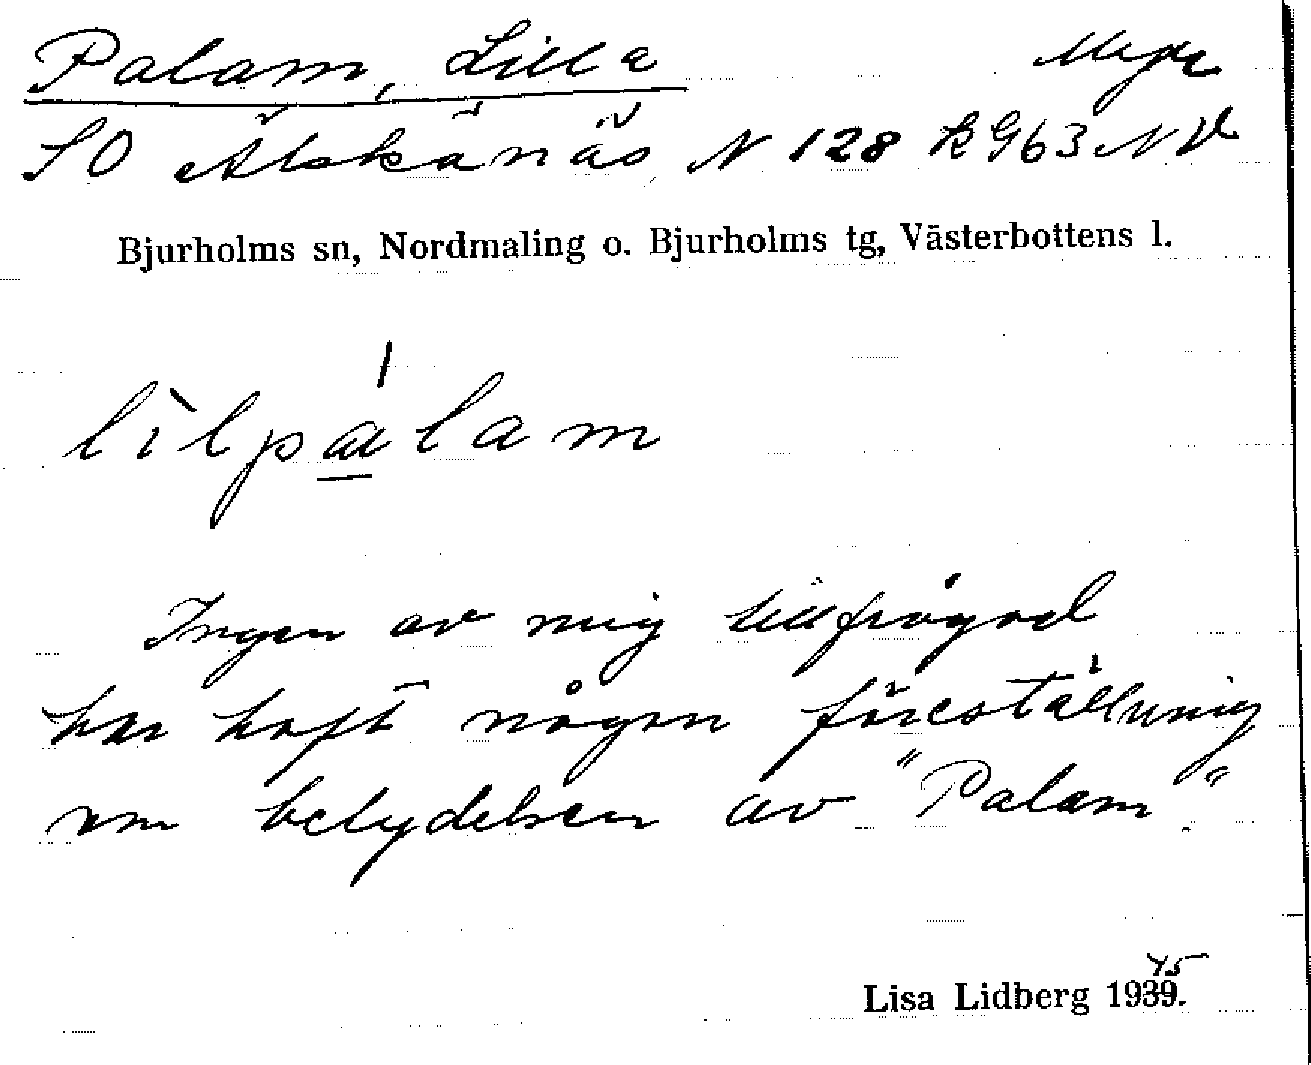 Palam, Lilla
SO Älskänäs, N 128 k 963 NV
Bjurholms sn, Nordmaling o. Bjurholms tg, Västerbottens l.
lìlpálam
Ingen av mig tillfrågad
har haft någon föreställning
om betydelsen av "Palam".
45
Lisa Lidberg 1939.